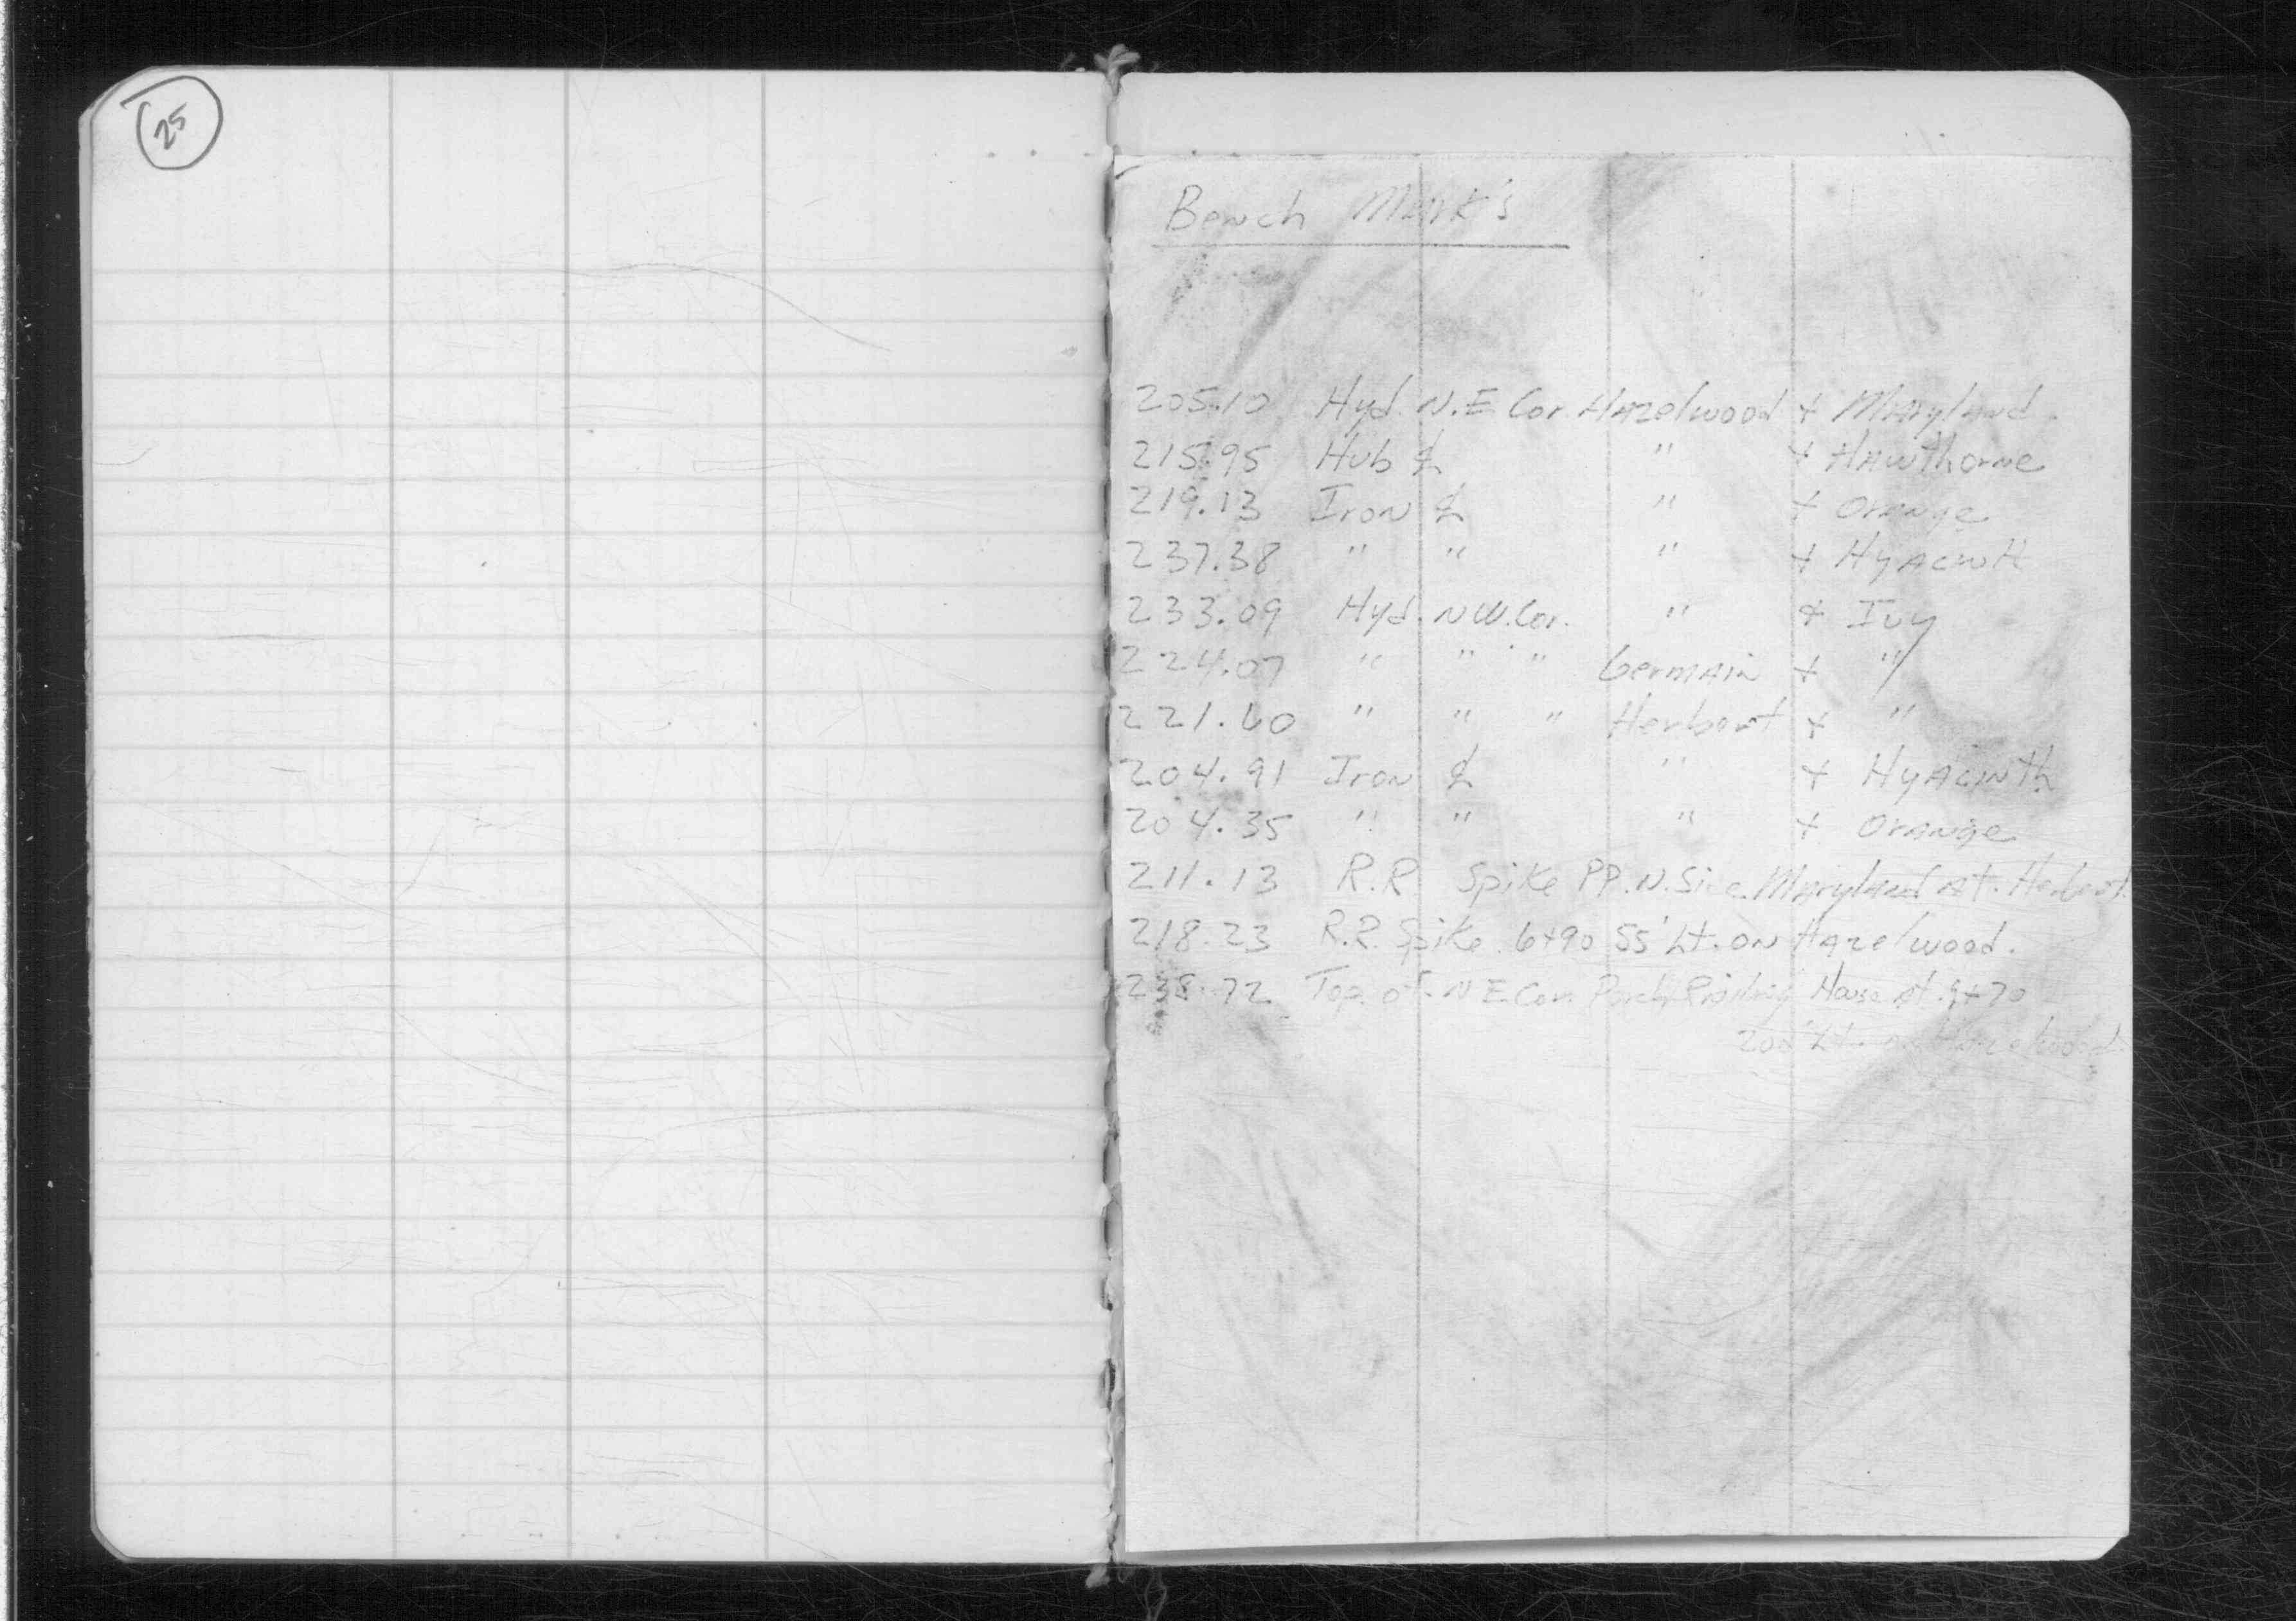 25
Bench Mark's
205.10 Hyd. N.E Cor. Hazelwood + Maryland.
215.95 Hub ℄ " + Hawthorne
219.13 Iron ℄ " + Orange
237.38 " " " + Hyacinth
233.09 Hyd. N.W. Cor. " + Ivy
224.07 " " " Germain + "
221.60 " " " Herbert + "
204.91 Iron ℄ " + Hyacinth
204.35 " " " + Orange
211.13 R.R Spike PP. N. Side Maryland At. Herbert.
218.23 R.R. Spike. 6+90 55' Lt. on Hazelwood.
238.72 Top. of. N E Cor. Porch House at 9+70
200' Lt. on Hazelwood.